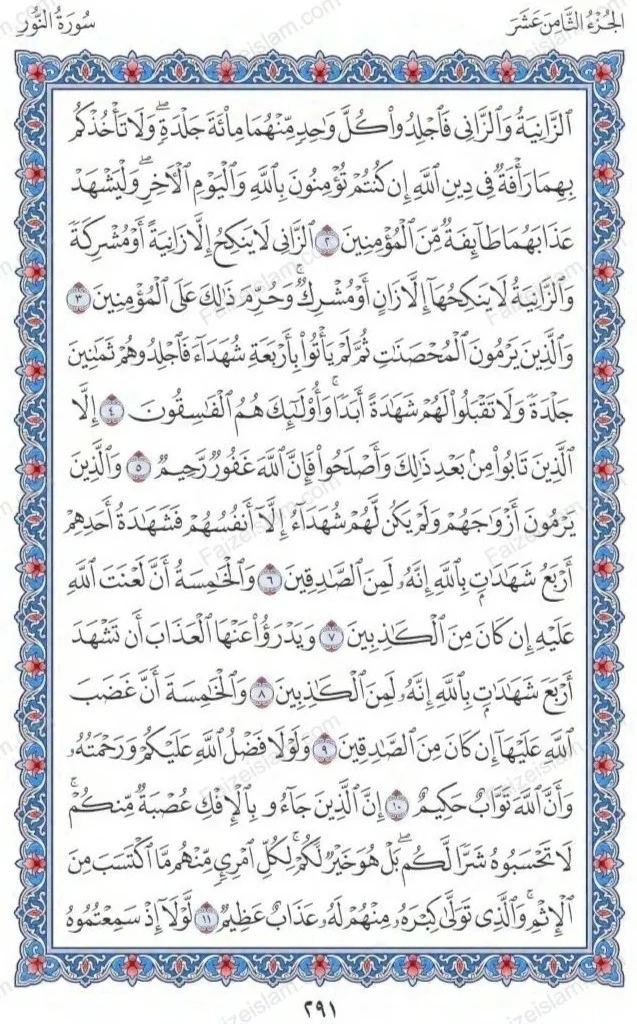 الجُزْءُ الثَّامِنَ عَشَرَ
سُورَةُ النُّورِ
ٱلزَّانِيَةُ وَٱلزَّانِى فَٱجْلِدُوا۟ كُلَّ وَٰحِدٍ مِّنْهُمَا مِا۟ئَةَ جَلْدَةٍ ۖ وَلَا تَأْخُذْكُم
بِهِمَا رَأْفَةٌ فِى دِينِ ٱللَّهِ إِن كُنتُمْ تُؤْمِنُونَ بِٱللَّهِ وَٱلْيَوْمِ ٱلْأَخِرِ ۖ وَلْيَشْهَدْ
عَذَابَهُمَا طَآئِفَةٌ مِّنَ ٱلْمُؤْمِنِينَ ٢ ٱلزَّانِى لَا يَنكِحُ إِلَّا زَانِيَةً أَوْ مُشْرِكَةً
وَٱلزَّانِيَةُ لَا يَنكِحُهَآ إِلَّا زَانٍ أَوْ مُشْرِكٌ ۚ وَحُرِّمَ ذَٰلِكَ عَلَى ٱلْمُؤْمِنِينَ ٣
وَٱلَّذِينَ يَرْمُونَ ٱلْمُحْصَنَٰتِ ثُمَّ لَمْ يَأْتُوا۟ بِأَرْبَعَةِ شُهَدَآءَ فَٱجْلِدُوهُمْ ثَمَٰنِينَ
جَلْدَةً وَلَا تَقْبَلُوا۟ لَهُمْ شَهَٰدَةً أَبَدًا ۚ وَأُو۟لَٰٓئِكَ هُمُ ٱلْفَٰسِقُونَ ٤ إِلَّا
ٱلَّذِينَ تَابُوا۟ مِنۢ بَعْدِ ذَٰلِكَ وَأَصْلَحُوا۟ فَإِنَّ ٱللَّهَ غَفُورٌ رَّحِيمٌ ٥ وَٱلَّذِينَ
يَرْمُونَ أَزْوَٰجَهُمْ وَلَمْ يَكُن لَّهُمْ شُهَدَآءُ إِلَّآ أَنفُسُهُمْ فَشَهَٰدَةُ أَحَدِهِمْ
أَرْبَعُ شَهَٰدَٰتٍۭ بِٱللَّهِ إِنَّهُۥ لَمِنَ ٱلصَّٰدِقِينَ ٦ وَٱلْخَٰمِسَةُ أَنَّ لَعْنَتَ ٱللَّهِ
عَلَيْهِ إِن كَانَ مِنَ ٱلْكَٰذِبِينَ ٧ وَيَدْرَؤُا۟ عَنْهَا ٱلْعَذَابَ أَن تَشْهَدَ
أَرْبَعَ شَهَٰدَٰتٍۭ بِٱللَّهِ إِنَّهُۥ لَمِنَ ٱلْكَٰذِبِينَ ٨ وَٱلْخَٰمِسَةَ أَنَّ غَضَبَ
ٱللَّهِ عَلَيْهَآ إِن كَانَ مِنَ ٱلصَّٰدِقِينَ ٩ وَلَوْلَا فَضْلُ ٱللَّهِ عَلَيْكُمْ وَرَحْمَتُهُۥ
وَأَنَّ ٱللَّهَ تَوَّابٌ حَكِيمٌ ١٠ إِنَّ ٱلَّذِينَ جَآءُو بِٱلْإِفْكِ عُصْبَةٌ مِّنكُمْ ۚ
لَا تَحْسَبُوهُ شَرًّا لَّكُم ۖ بَلْ هُوَ خَيْرٌ لَّكُمْ ۚ لِكُلِّ ٱمْرِئٍ مِّنْهُم مَّا ٱكْتَسَبَ مِنَ
ٱلْإِثْمِ ۚ وَٱلَّذِى تَوَلَّىٰ كِبْرَهُۥ مِنْهُمْ لَهُۥ عَذَابٌ عَظِيمٌ ١١ لَّوْلَآ إِذْ سَمِعْتُمُوهُ
٢٩١
Faizeislam.com